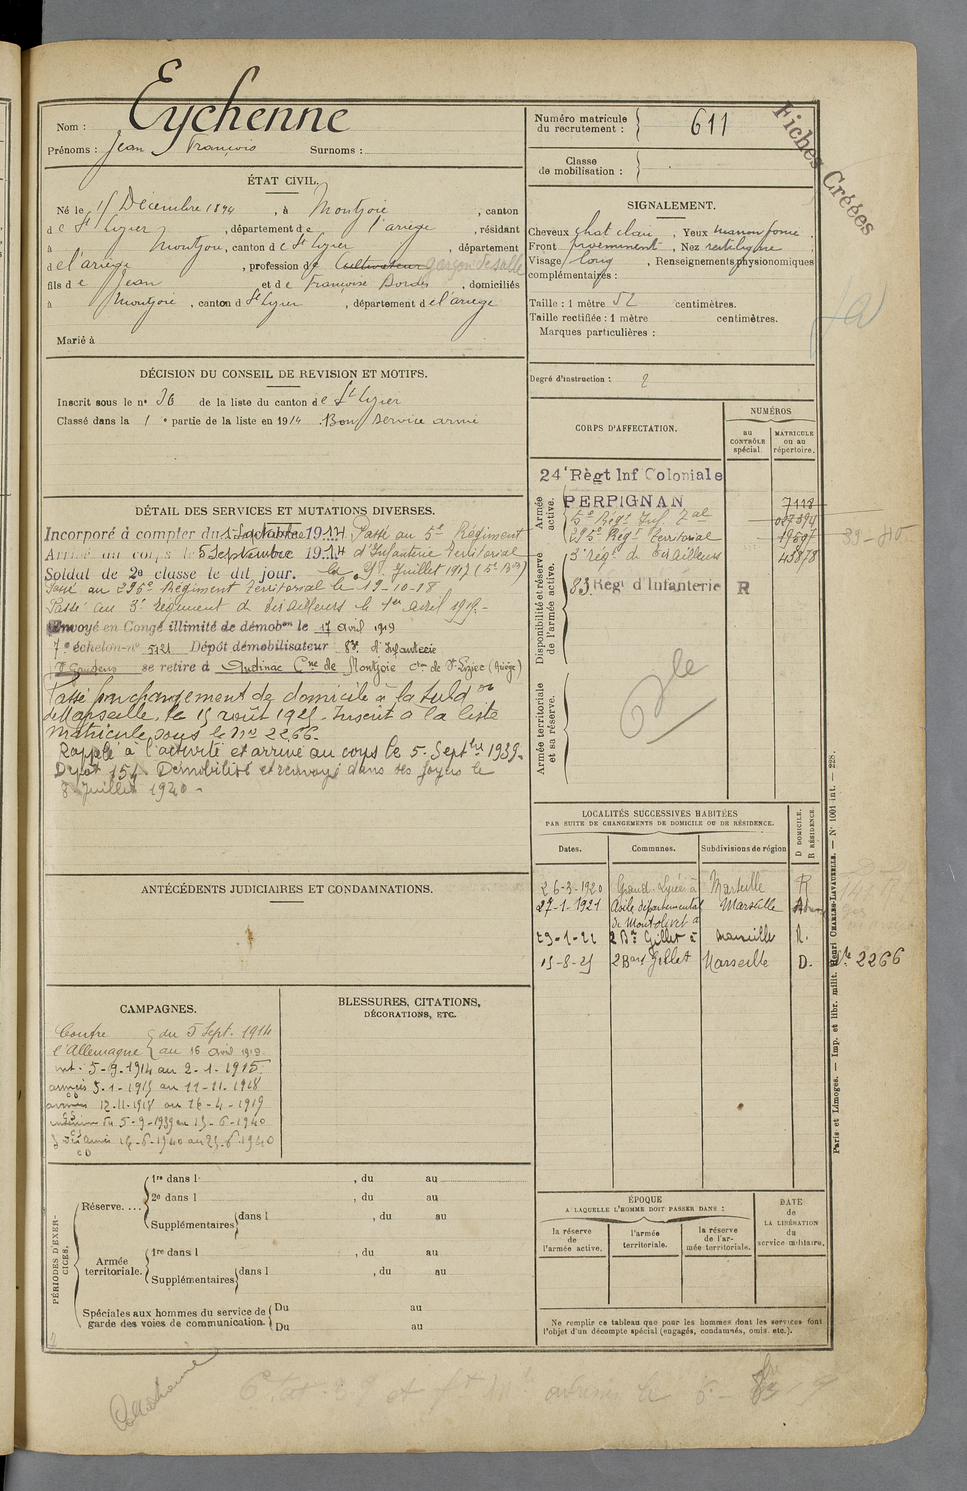 Nom : Eychenne
Prénoms : Jean François Surnoms :
Numéro matricule du recrutement : 611
Classe de mobilisation :
Fiches Créées
ÉTAT CIVIL.
Né le 15 Décembre 1894, à Montjoie, canton
de St Lizier, département de l'ariège, résidant
à Montjoie, canton de St Lizier, département
de l'ariège, profession de Cultivateur garçon de salle
fils de Jean et de Françoise Bordes, domiciliés
à Montjoie, canton d St Lizier, département de l'ariège
Marié à
SIGNALEMENT.
Cheveux chat clair, Yeux marron foncé
Front proéminent, Nez rectiligne
Visage long, Renseignements physionomiques
complémentaires :
Taille : 1 mètre 52 centimètres.
Taille rectifiée : 1 mètre centimètres.
Marques particulières :
Degré d'instruction : 2
DÉCISION DU CONSEIL DE REVISION ET MOTIFS.
Inscrit sous le n° 36 de la liste du canton de St Lizier
Classé dans la 1e partie de la liste en 1914 . Bon service armé
CORPS D'AFFECTATION.
NUMÉROS
au CONTRÔLE spécial.
MATRICULE ou au répertoire.
Armée active.
24e Règt Inf Coloniale
PERPIGNAN 7118
5e Régt Inf. Tal
295e Régt Territorial
3e régt de tirailleurs 45878
Disponibilité et réserve de l'armée active.
83 Régt d'Infanterie R
Armée territoriale et sa réserve.
DÉTAIL DES SERVICES ET MUTATIONS DIVERSES.
Incorporé à compter du 1 Septembre 1914 Passé au 5e Régiment
Arrivé au corps le 5 Septembre 1914 d'Infanterie territorial
Soldat de 2e classe le dit jour. Juillet 1917
Passé au 295e Régiment territorial le 19-10-18
Passé au 3e Régiment de tirailleurs le 1er avril 1919.
Envoyé en Congé illimité de démobon le 17 avril 1919
7e échelon n° 5121 Dépôt démobilisateur 83e d'Infanterie
St Gaudens se retire à Audinac Cne de Montjoie cton de St Lizier (Ariège)
Passé par changement de domicile à la subdon
de Marseille, le 15 août 1925. Inscrit à la liste
matricule sous le no 2266.
Rappelé à l'activité et arrivé au corps le 5 Septbre 1939.
Dépôt 154 Démobilisé et renvoyé dans ses foyers le
8 Juillet 1940 -
LOCALITÉS SUCCESSIVES HABITÉES
PAR SUITE DE CHANGEMENTS DE DOMICILE OU DE RÉSIDENCE.
Dates. Communes. Subdivisions de région D DOMICILE. R RÉSIDENCE.
26-3-1920 Grand Lycée à Marseille R
27-1-1921 Asile départemental de Montolivet à Marseille
23-1-22 2 Bd Gillet à Marseille R.
15-8-25 2 Bard Gillet Marseille D. 2266
ANTÉCÉDENTS JUDICIAIRES ET CONDAMNATIONS.
CAMPAGNES.
Contre l'Allemagne du 5 Sept. 1914
au 16 avril 1919.
int : 5-9-1914 au 2-1-1915
armées 3-1-1915 au 11-11-1918
armées 12-11-1918 au 16-4-1919
intérieur du 5-9-1939 au 15-6-1940
armées 16-6-1940 au 25-6-1940
BLESSURES, CITATIONS, DÉCORATIONS, ETC.
PÉRIODES D'EXERCICES.
Réserve....
1re dans l , du au
2e dans l , du au
Supplémentaires dans l , du au
Armée territoriale.
1re dans l , du au
Supplémentaires dans l , du au
Spéciales aux hommes du service de garde des voies de communication.
Du au
Du au
ÉPOQUE
A LAQUELLE L'HOMME DOIT PASSER DANS :
la réserve de l'armée active.
l'armée territoriale.
la réserve de l'armée territoriale.
DATE de LA LIBÉRATION du service militaire.
Ne remplir ce tableau que pour les hommes dont les services font
l'objet d'un décompte spécial (engagés, condamnés, omis. etc.).
Paris et Limoges. — Imp. et libr. milit. Henri CHARLES-LAVAUZELLE. — N° 1001 int. — 228.